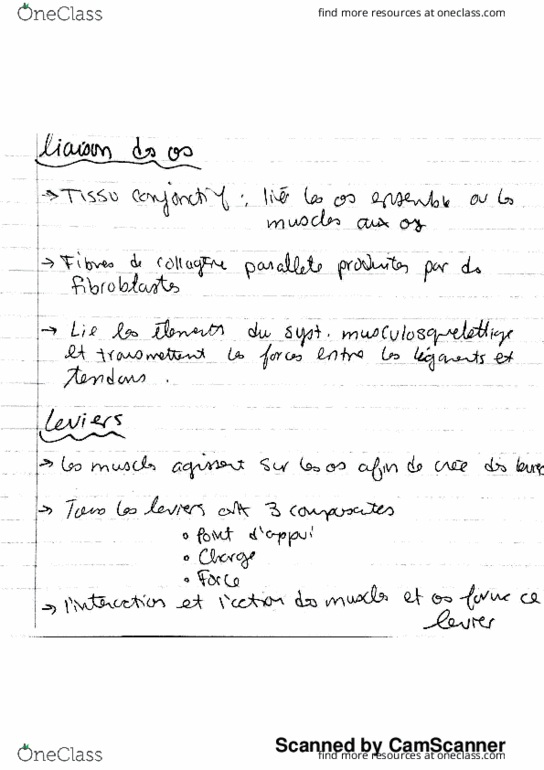 OneClass
find more resources at oneclass.com
liaison des os
→ Tissu conjonctif : lié les os ensemble ou les
muscles aux os
→ Fibres de collagène parallèle produites par des
fibroblastes
→ Lie les élements du syst. musculosquelettique
et transmettent les forces entre les ligaments et
tendons.
leviers
→ Les muscles agissent sur les os afin de crée des
→ Tous les leviers ont 3 composantes
• Point d'appui
• Charge
• Force
→ l'interaction et l'action des muscles et os forme ce
levier
Scanned by CamScanner
OneClass
find more resources at oneclass.com